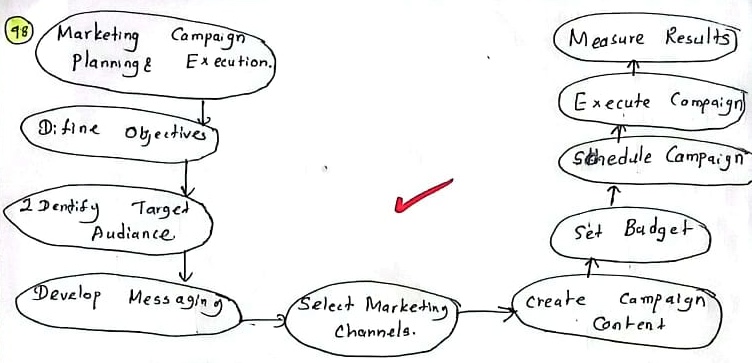 98
Marketing Campaign
Planning & Execution.
Difine Objectives
2 Dentify Target
Audiance
Develop Messaging
Select Marketing
Channels.
Create Campaign
Content
Set Budget
Schedule Campaign
Execute Compaign
Measure Results